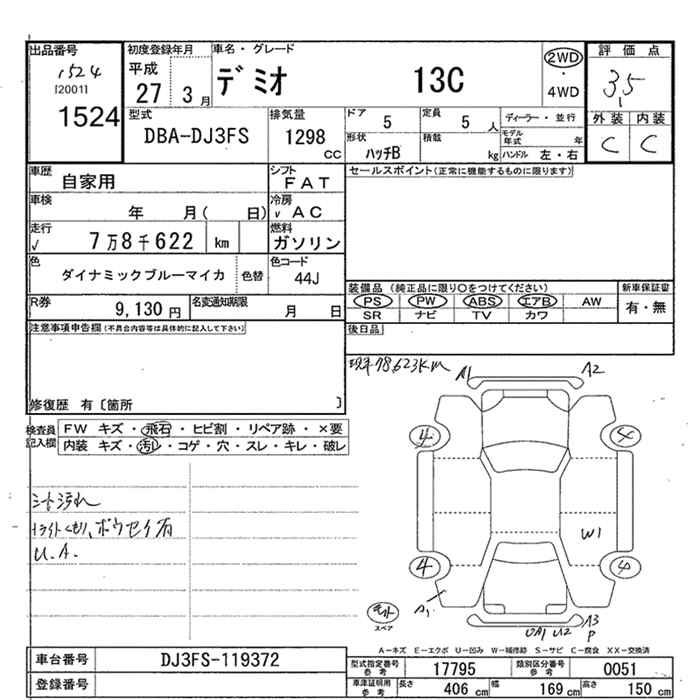 出品番号
1524
[2001]
1524
初度登録年月
平成
27 3月
車名・グレード
デミオ 13C
2WD
・
4WD
評価点
3.5
外装 内装
C C
型式
DBA-DJ3FS
排気量
1298
cc
ドア 5
定員 5人
ディーラー・並行
形状
ハッチB
積載
kg
モデル年式 年
ハンドル 左・右
車歴
自家用
シフト
FAT
セールスポイント(正常に機能するものに限ります)
車検
年 月( 日)
冷房
√ AC
走行
√ 7万8千622 km
燃料
ガソリン
色
ダイナミックブルーマイカ
色替
色コード
44J
装備品 (純正品に限り○をつけてください)
新車保証書
PS PW ABS エアB AW
有・無
SR ナビ TV カワ
R券
9,130円
名変通知期限
月 日
後日品
注意事項申告欄(不具合内容等は具体的に記入して下さい)
修復歴 有〔箇所 〕
現車78,623km
A1 A2
検査員記入欄
FW キズ・飛石・ヒビ割・リペア跡・×要
内装 キズ・汚レ・コゲ・穴・スレ・キレ・破レ
4 4
シート汚れ
U.A.
W1
4 4
A1
スペア
UA1 U2
A3
P
A-キズ E-エクボ U-凹み W-補修跡 S-サビ C-腐食 XX-交換済
車台番号
DJ3FS-119372
登録番号
型式指定番号参考
17795
類別区分番号参考
0051
車庫証明用参考
長さ 406cm
幅 169cm
高さ 150cm